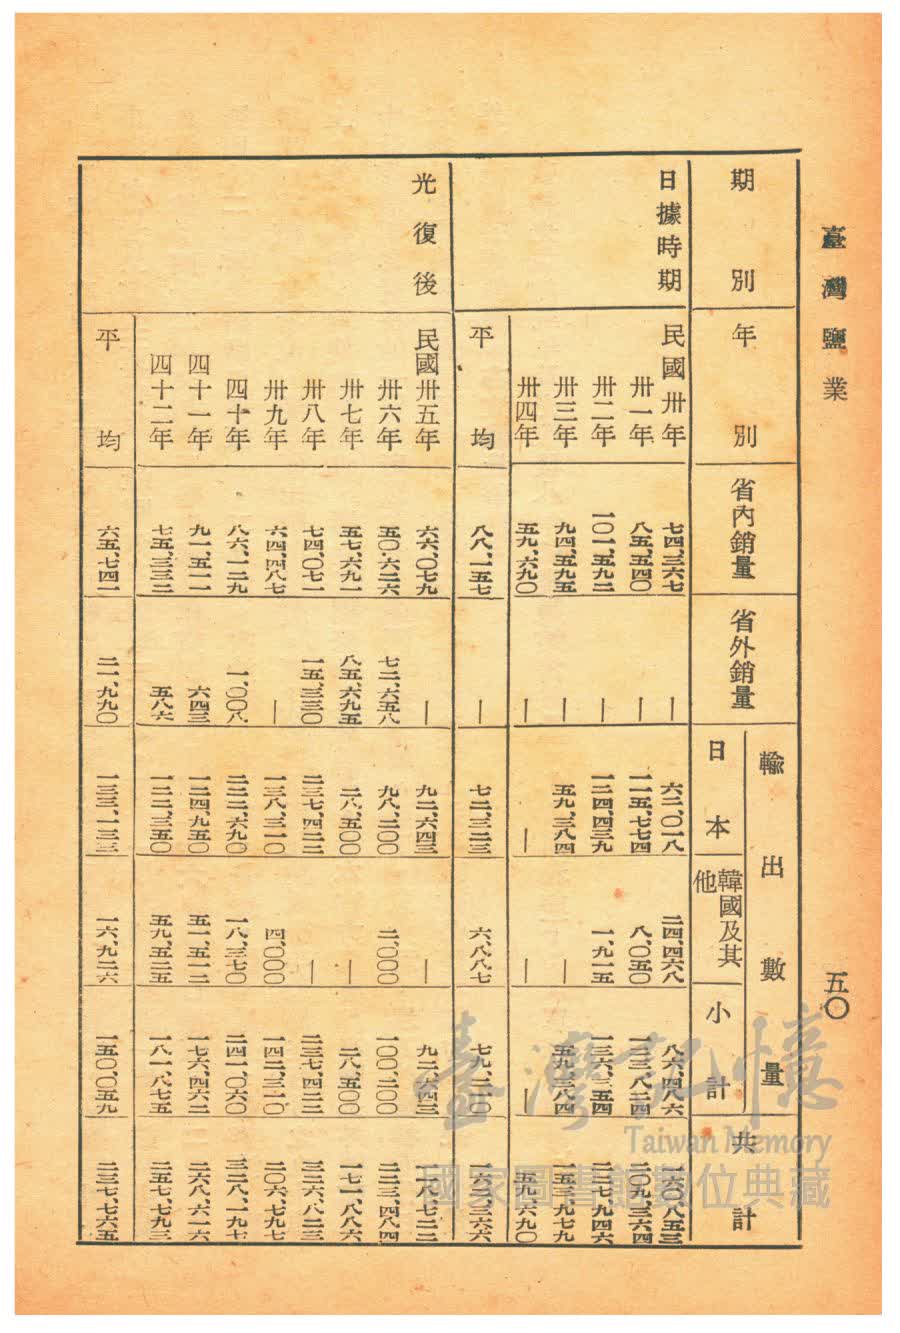 臺灣鹽業
五〇
期別 年別 省內銷量 省外銷量 輸出數量 共計
日本 韓國及其他 小計
日據時期 民國卅年 七四、三六七 — 六二、〇一八 二四、四六八 八六、四八六 一六〇、八五三
卅一年 八五、五四〇 — 一一五、七七四 八、〇五〇 一二三、八二四 二〇九、三六四
卅二年 一〇一、五九二 — 一二四、四三九 一、九一五 一三六、三五四 二三七、九四六
卅三年 九四、五九五 — 五九、三八四 — 五九、三八四 一五三、九七九
卅四年 五九、六九〇 — — — 五九、六九〇
平均 八八、一五七 — 七二、三二三 六、八八七 七九、二一〇 一六二、三六六
光復後 民國卅五年 六六、〇七九 — 九二、六四三 — 九二、六四三 一五八、七二二
卅六年 五〇、六二六 七二、六五八 九八、二〇〇 二、〇〇〇 一〇〇、二〇〇 二二三、四八四
卅七年 五七、六九一 八五、六九五 二八、五〇〇 — 二八、五〇〇 一七一、八八六
卅八年 七四、〇七一 一五、三三〇 二三七、四二二 — 二三七、四二二 三二六、八二三
卅九年 六四、四八七 — 一三八、三一〇 四、〇〇〇 一四二、三一〇 二〇六、七九七
四十年 八六、一二九 一、〇〇八 二二二、六九〇 一八、三七〇 二四一、〇六〇 三二八、一九七
四十一年 九一、五一一 六四三 一二四、九五〇 五一、五一二 一七六、四六二 二六八、六一六
四十二年 七五、三三二 五八六 一二二、三五〇 五九、五二五 一八一、八七五 二五七、七九三
平均 六五、七四一 二一、九九〇 一三三、一三三 一六、九二六 一五〇、〇五九 二三七、七六五
臺灣記憶
Taiwan Memory
國家圖書館數位典藏